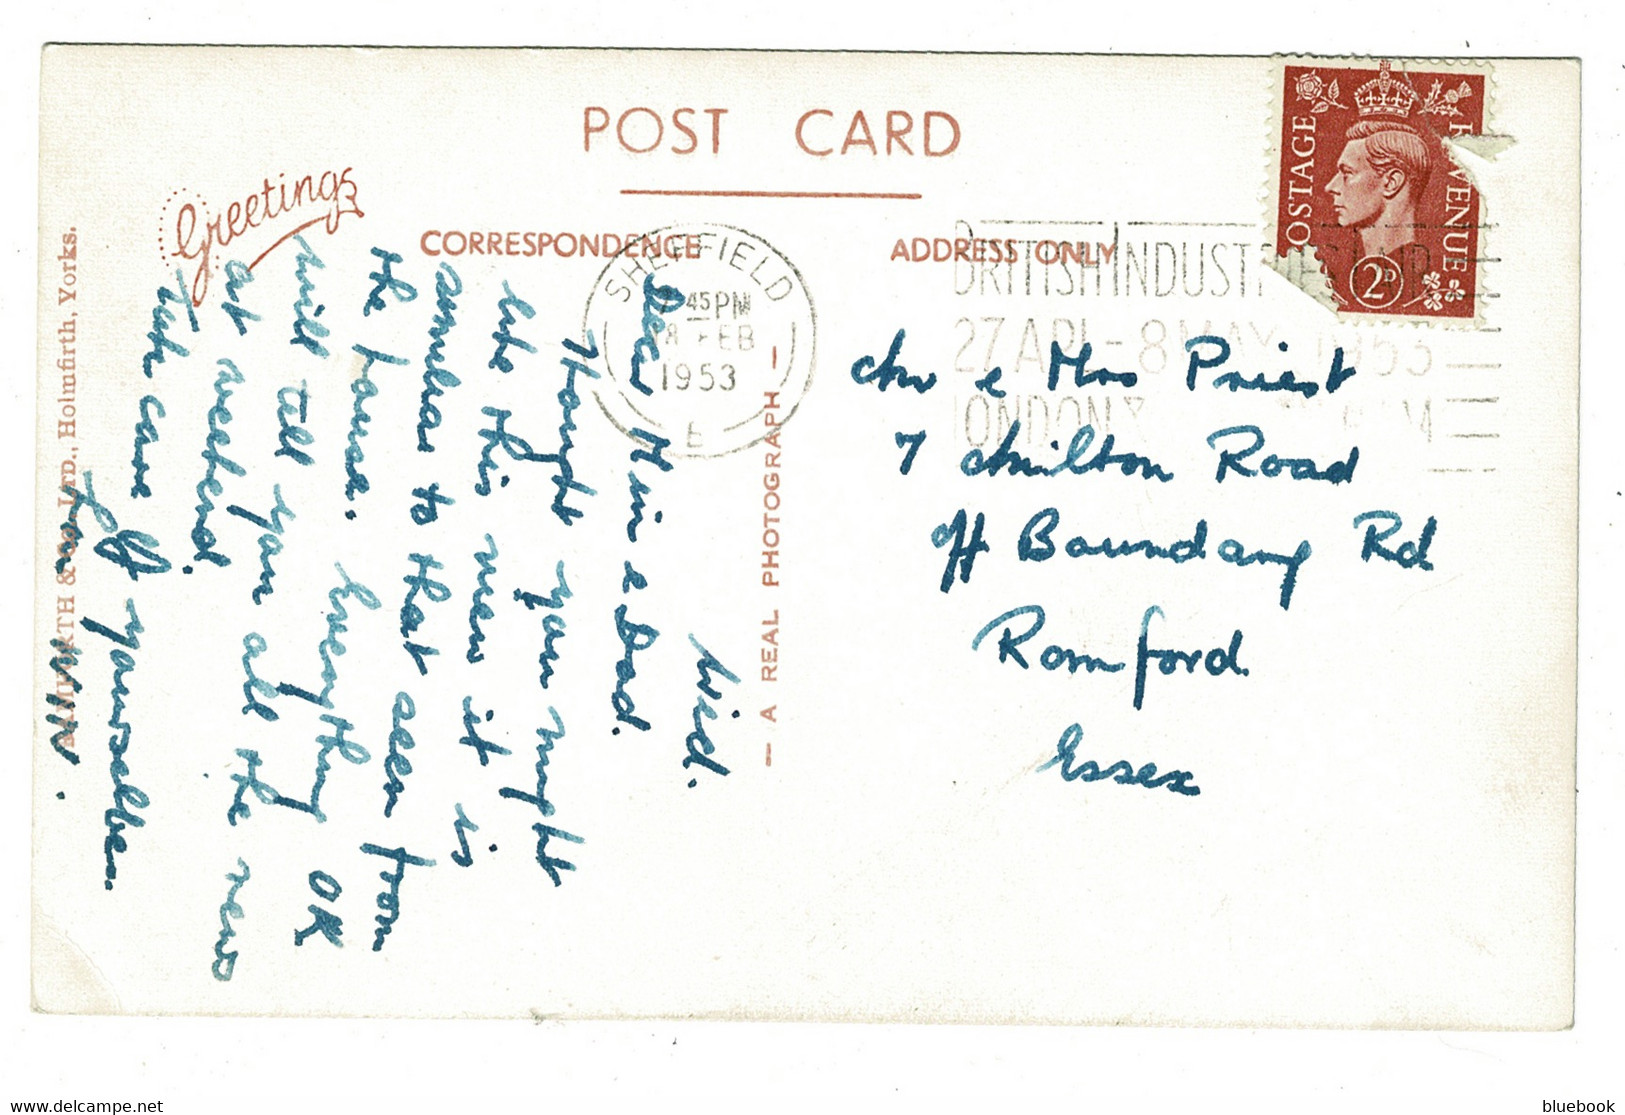 POST CARD
Greetings
CORRESPONDENCE
ADDRESS ONLY
POSTAGE
REVENUE
2D
SHEFFIELD
45 PM
8 FEB
1953
E
BRITISH INDUSTRIES FAIR
27 APL - 8 MAY 1953
LONDON &
Wed.
Dear Mum & Dad.
Thought you might
like this view it is
similar to that seen from
the house. Everything OK
will tell you all the news
at weekend.
Take care of yourselves.
Mr & Mrs Priest
7 Milton Road
off Boundary Rd
Romford
Essex
— A REAL PHOTOGRAPH —
BAMFORTH & CO. LTD., Holmfirth, Yorks.
bluebook